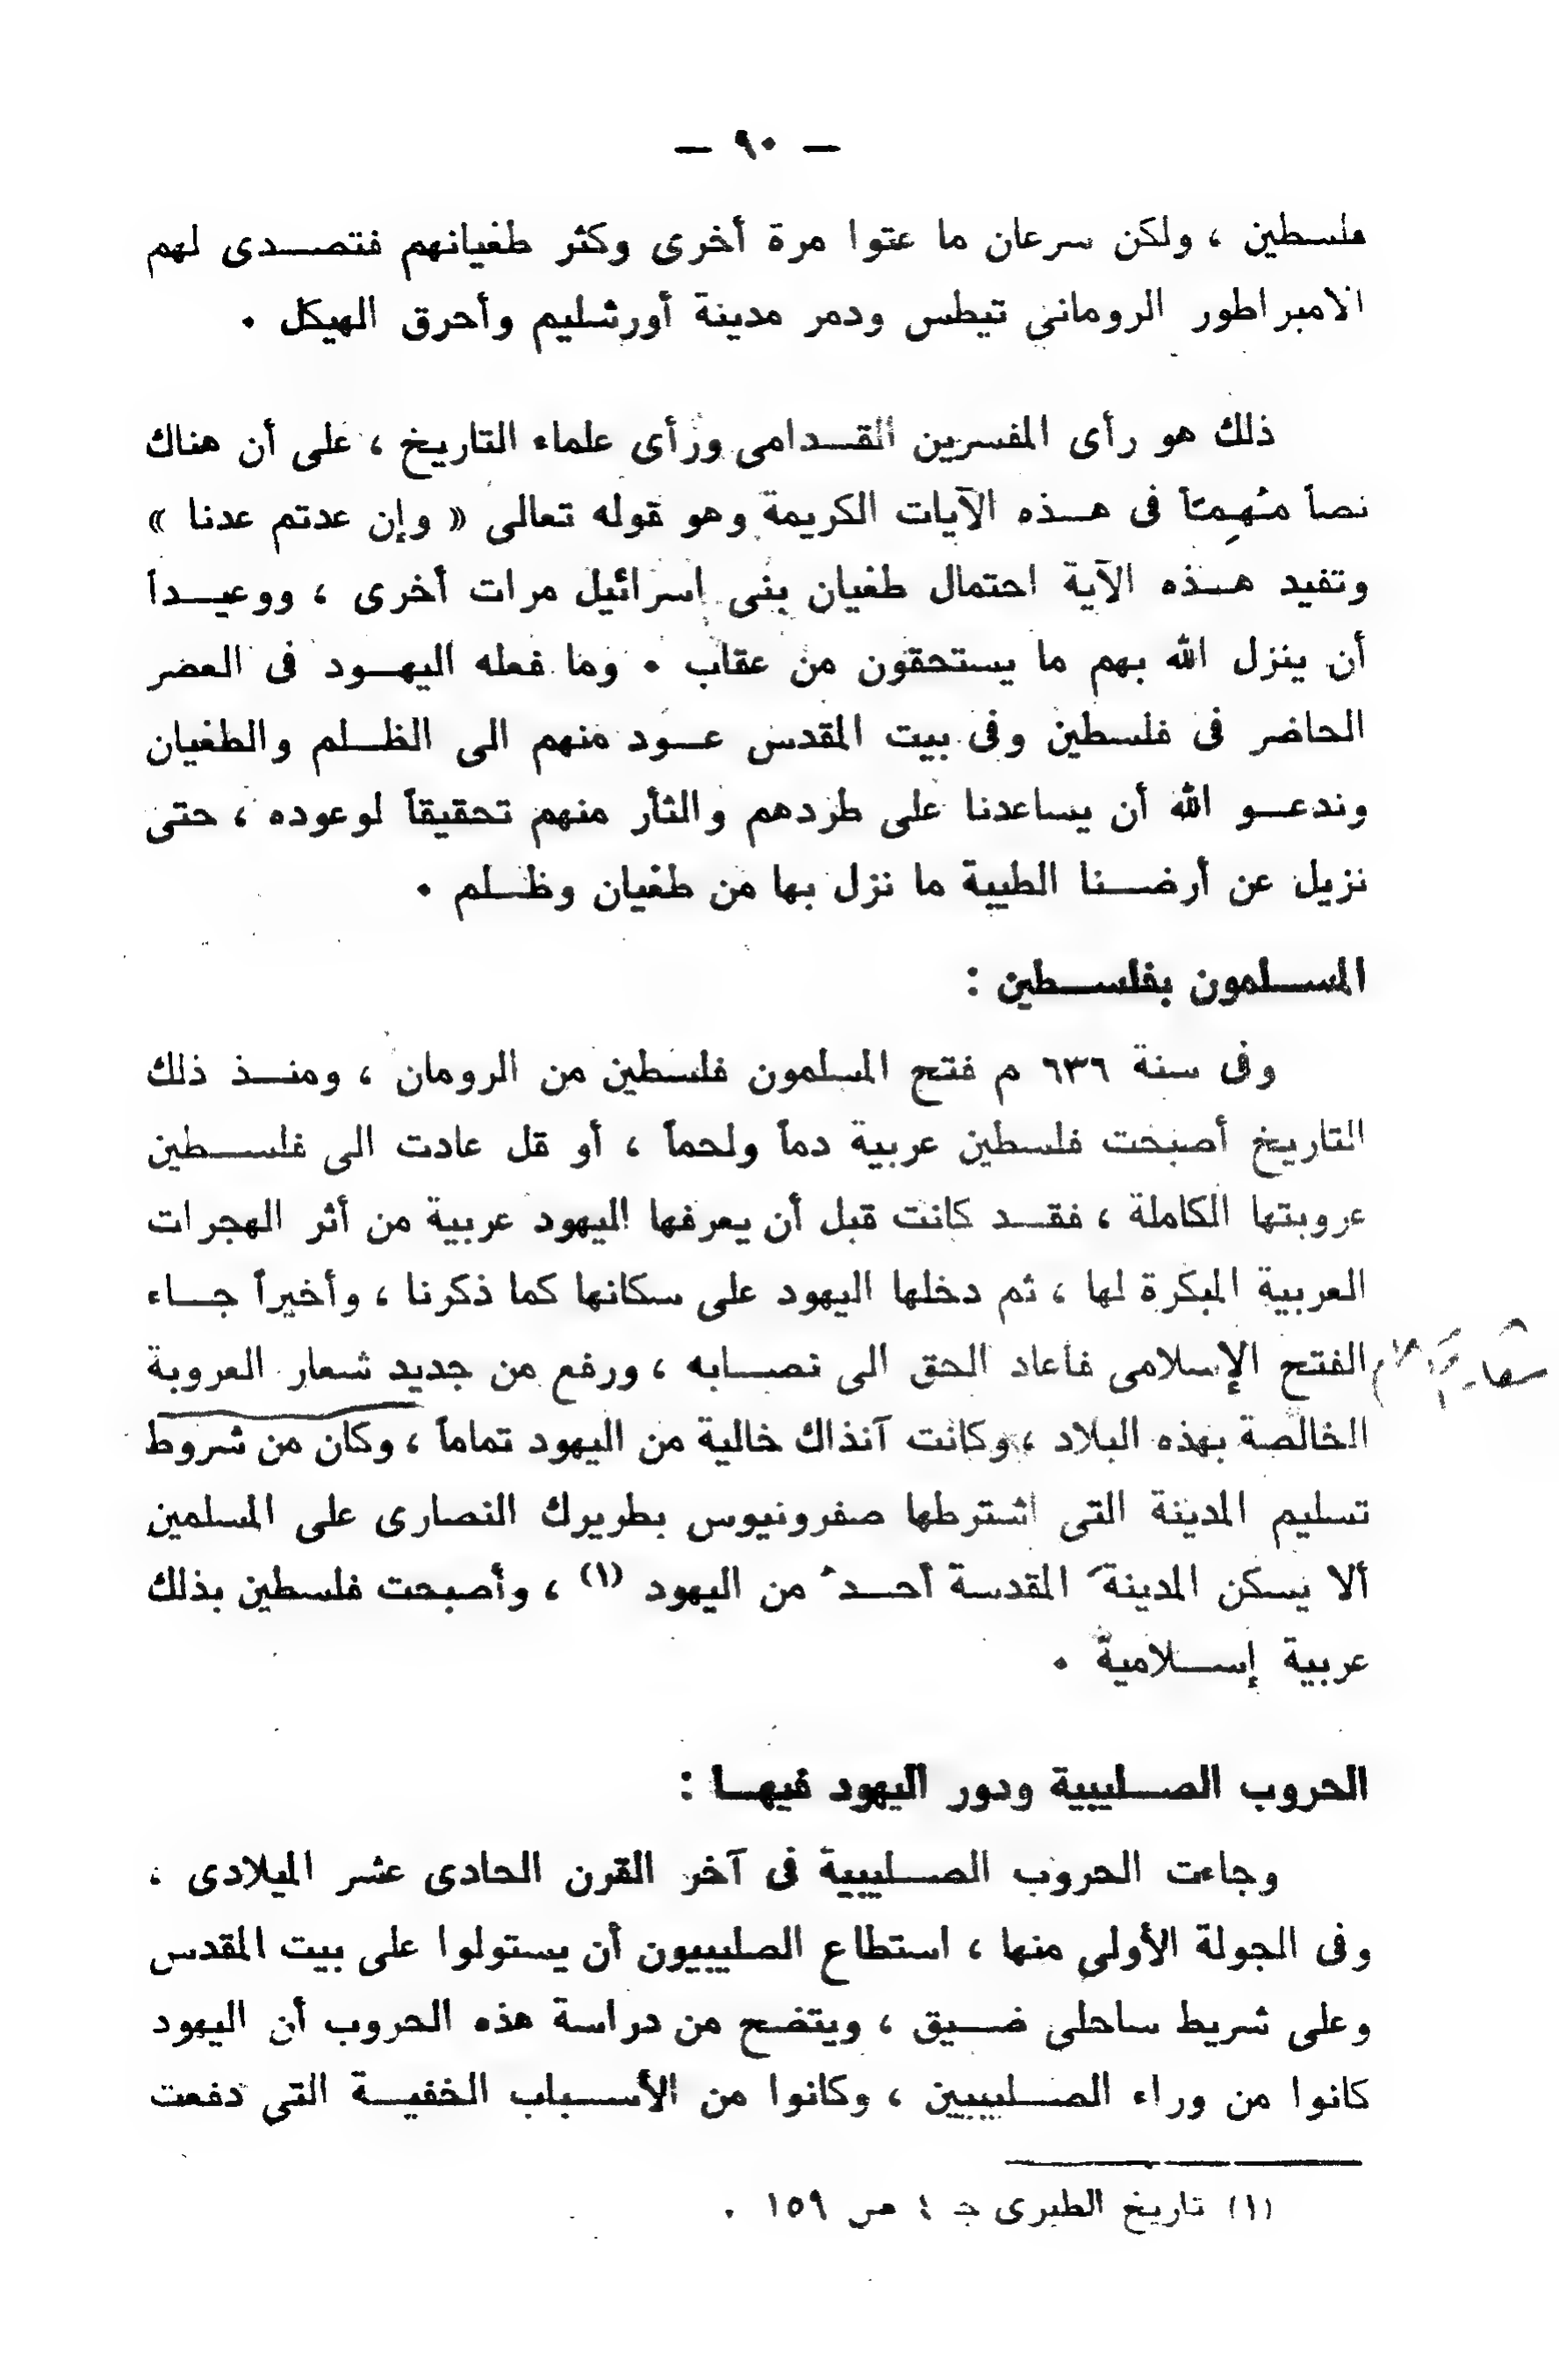 — ٩٠ —
فلسطين ، ولكن سرعان ما عتوا مرة أخرى وكثر طغيانهم فتصدى لهم
الامبراطور الرومانى تيطس ودمر مدينة أورشليم وأحرق الهيكل .
ذلك هو رأى المفسرين القدامى ورأى علماء التاريخ ، على أن هناك
نصاً مُهِمّاً فى هذه الآيات الكريمة وهو قوله تعالى « وإن عدتم عدنا »
وتفيد هذه الآية احتمال طغيان بنى إسرائيل مرات أخرى ، ووعيداً
أن ينزل الله بهم ما يستحقون من عقاب . وما فعله اليهود فى العصر
الحاضر فى فلسطين وفى بيت المقدس عود منهم الى الظلم والطغيان
وندعو الله أن يساعدنا على طردهم والثأر منهم تحقيقاً لوعوده ، حتى
نزيل عن أرضنا الطيبة ما نزل بها من طغيان وظلم .
المسلمون بفلسطين :
وفى سنة ٦٣٦ م فتح المسلمون فلسطين من الرومان ، ومنذ ذلك
التاريخ أصبحت فلسطين عربية دماً ولحماً ، أو قل عادت الى فلسطين
عروبتها الكاملة ، فقد كانت قبل أن يعرفها اليهود عربية من أثر الهجرات
العربية المبكرة لها ، ثم دخلها اليهود على سكانها كما ذكرنا ، وأخيراً جاء
الفتح الإسلامى فأعاد الحق الى نصابه ، ورفع من جديد شعار العروبة
الخالصة بهذه البلاد ، وكانت آنذاك خالية من اليهود تماماً ، وكان من شروط
تسليم المدينة التى اشترطها صفرونيوس بطريرك النصارى على المسلمين
ألا يسكن المدينةَ المقدسة أحدٌ من اليهود (١) ، وأصبحت فلسطين بذلك
عربية إسلامية .
الحروب الصليبية ودور اليهود فيها :
وجاءت الحروب الصليبية فى آخر القرن الحادى عشر الميلادى ،
وفى الجولة الأولى منها ، استطاع الصليبيون أن يستولوا على بيت المقدس
وعلى شريط ساحلى ضيق ، ويتضح من دراسة هذه الحروب أن اليهود
كانوا من وراء الصليبيين ، وكانوا من الأسباب الخفية التى دفعت
(١) تاريخ الطبرى جـ ٤ ص ١٥٩ .